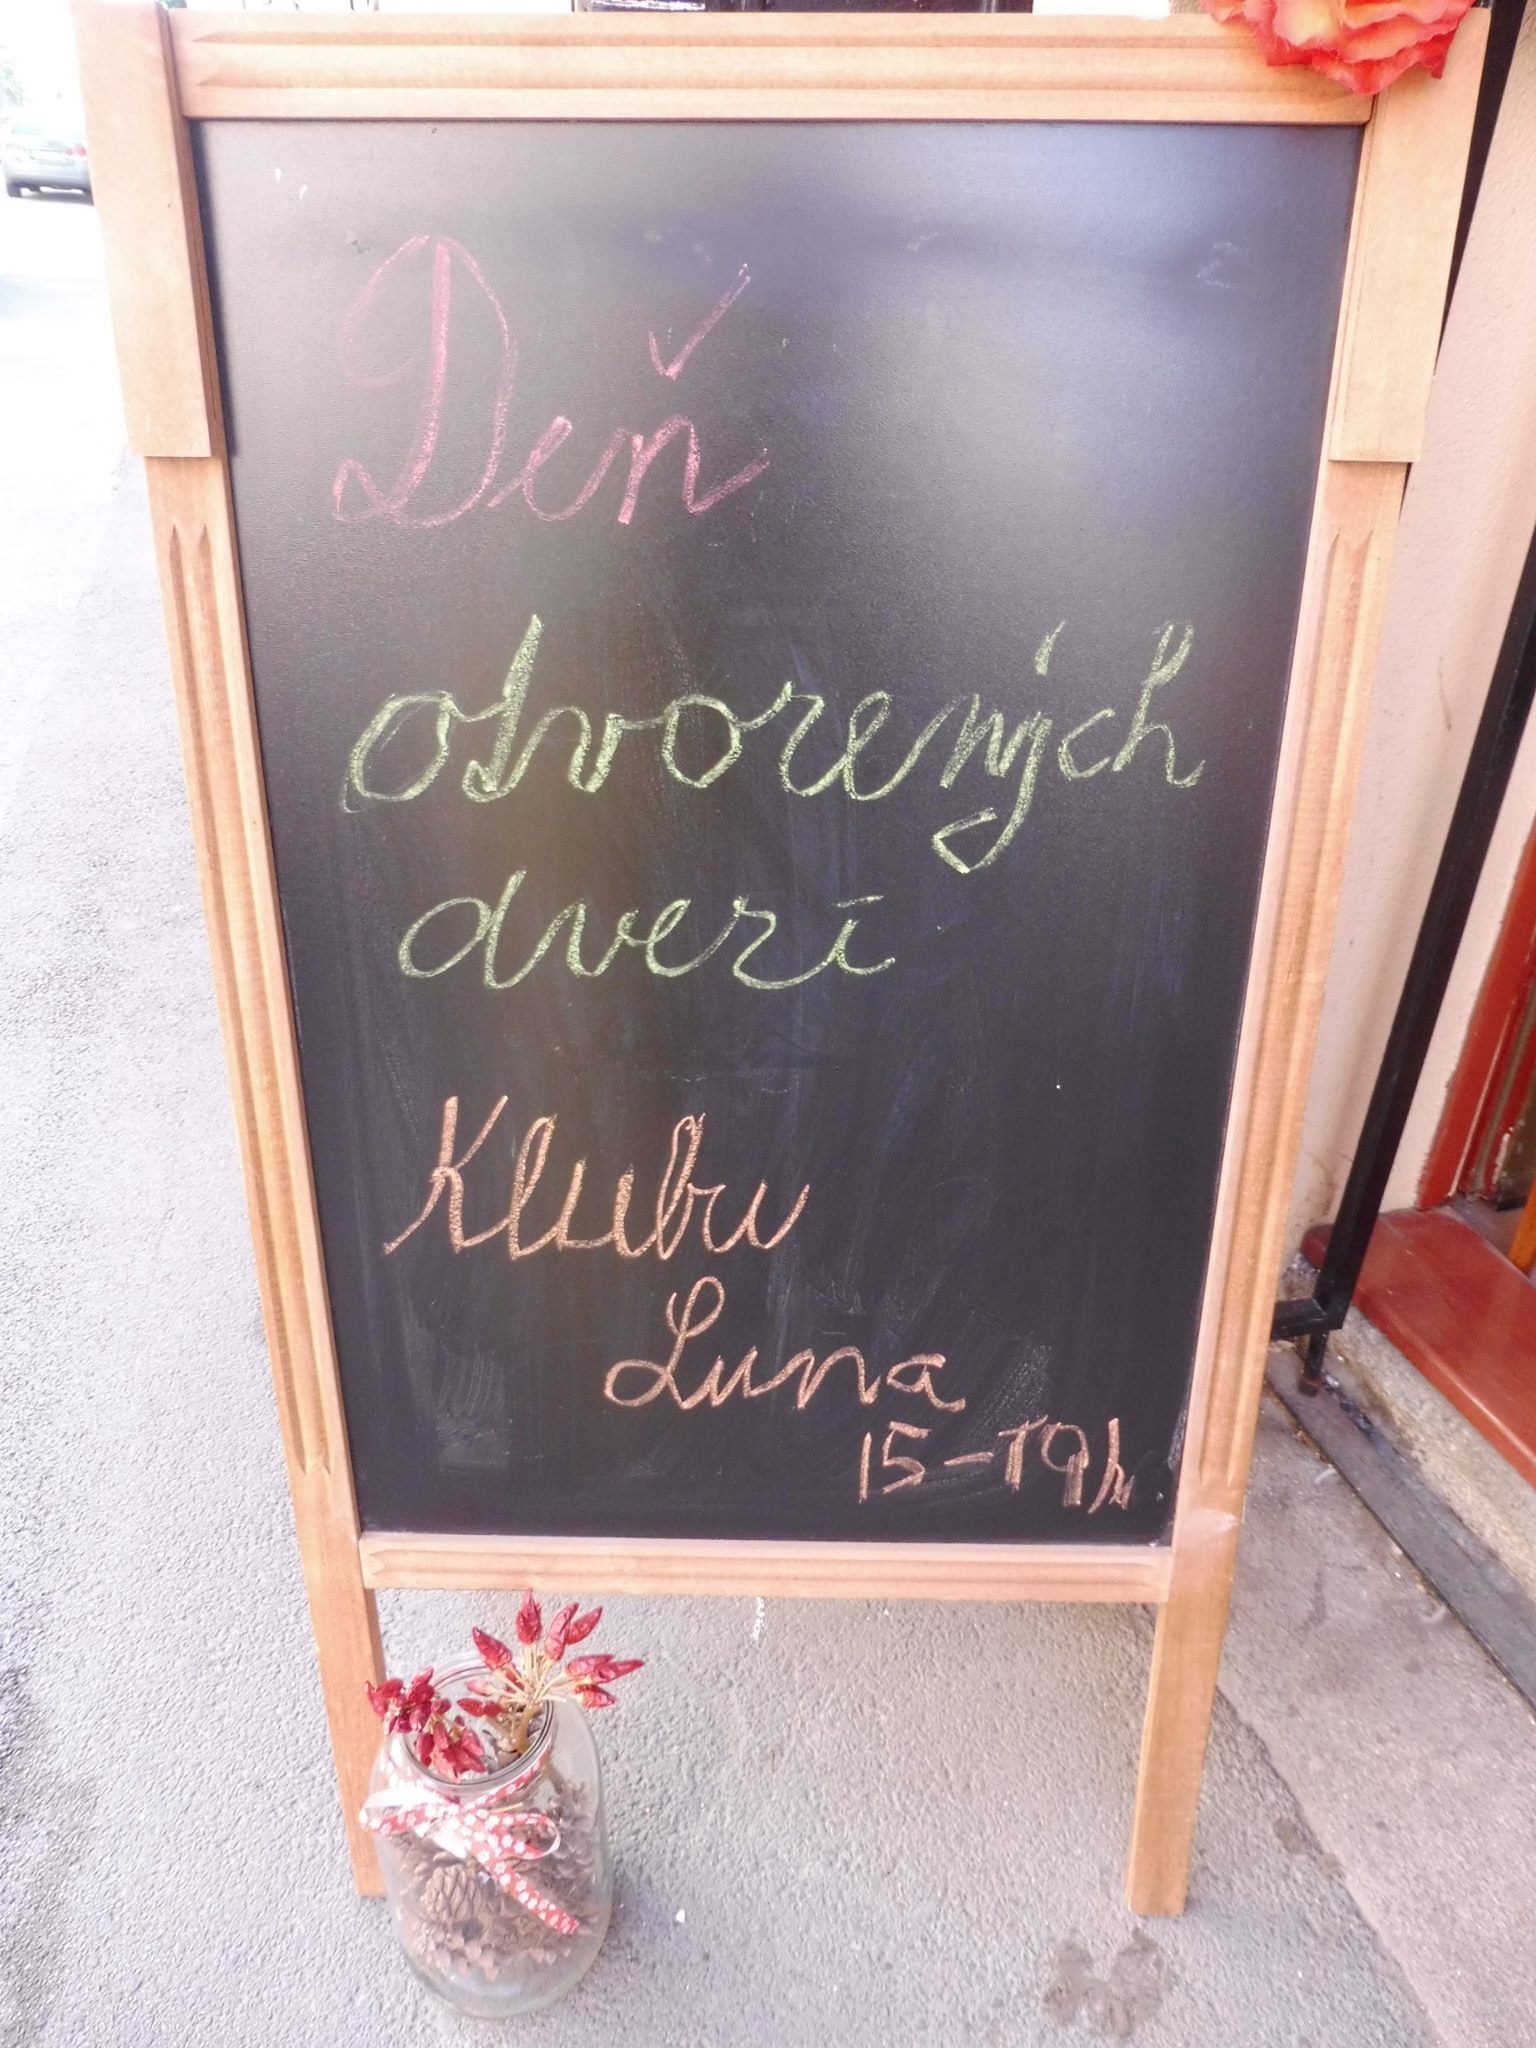 Deň
otvorených
dverí
Klubu
Luna
15-19h